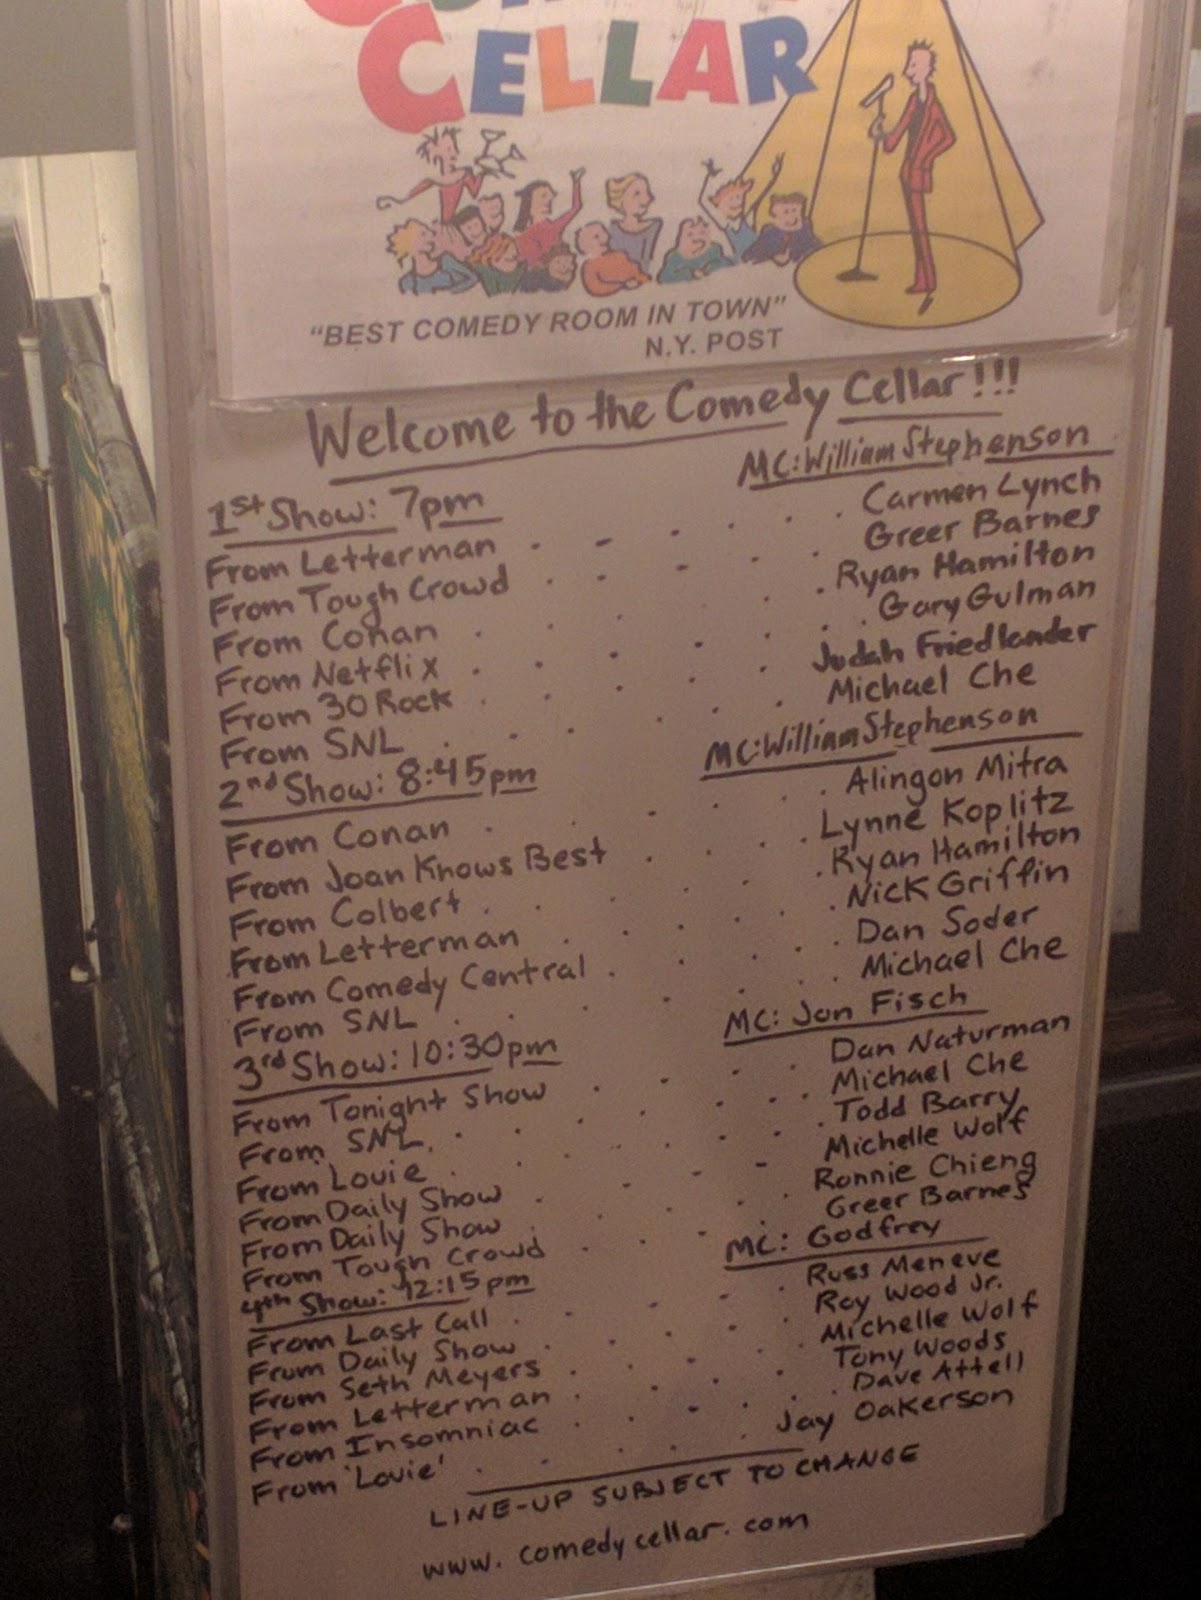 CELLAR
"BEST COMEDY ROOM IN TOWN"
N.Y. POST
Welcome to the Comedy Cellar!!!
1st Show: 7pm MC: William Stephenson
From Letterman . - . . . Carmen Lynch
From Tough Crowd . - - . . Greer Barnes
From Conan . . . . . Ryan Hamilton
From Netflix . . . . . Gary Gulman
From 30 Rock . . . . . Judah Friedlander
From SNL . . . . . Michael Che
2nd Show: 8:45pm MC: William Stephenson
From Conan . . . . . Alingon Mitra
From Joan Knows Best . . . . Lynne Koplitz
From Colbert . . . . . Ryan Hamilton
From Letterman . . . . . Nick Griffin
From Comedy Central . . . . Dan Soder
From SNL . . . . . Michael Che
3rd Show: 10:30pm MC: Jon Fisch
From Tonight Show . . . . Dan Naturman
From SNL . . . . . Michael Che
From Louie . . . . . Todd Barry
From Daily Show . . . . Michelle Wolf
From Daily Show . - - . Ronnie Chieng
From Tough Crowd . . . . Greer Barnes
4th Show: 12:15pm MC: Godfrey
From Last Call . . . . Russ Meneve
From Daily Show . . . . Roy Wood Jr.
From Seth Meyers . . . . Michelle Wolf
From Letterman . . . . Tony Woods
From Insomniac . . - . Dave Attell
From 'Louie' . . . . Jay Oakerson
LINE-UP SUBJECT TO CHANGE
www.comedycellar.com